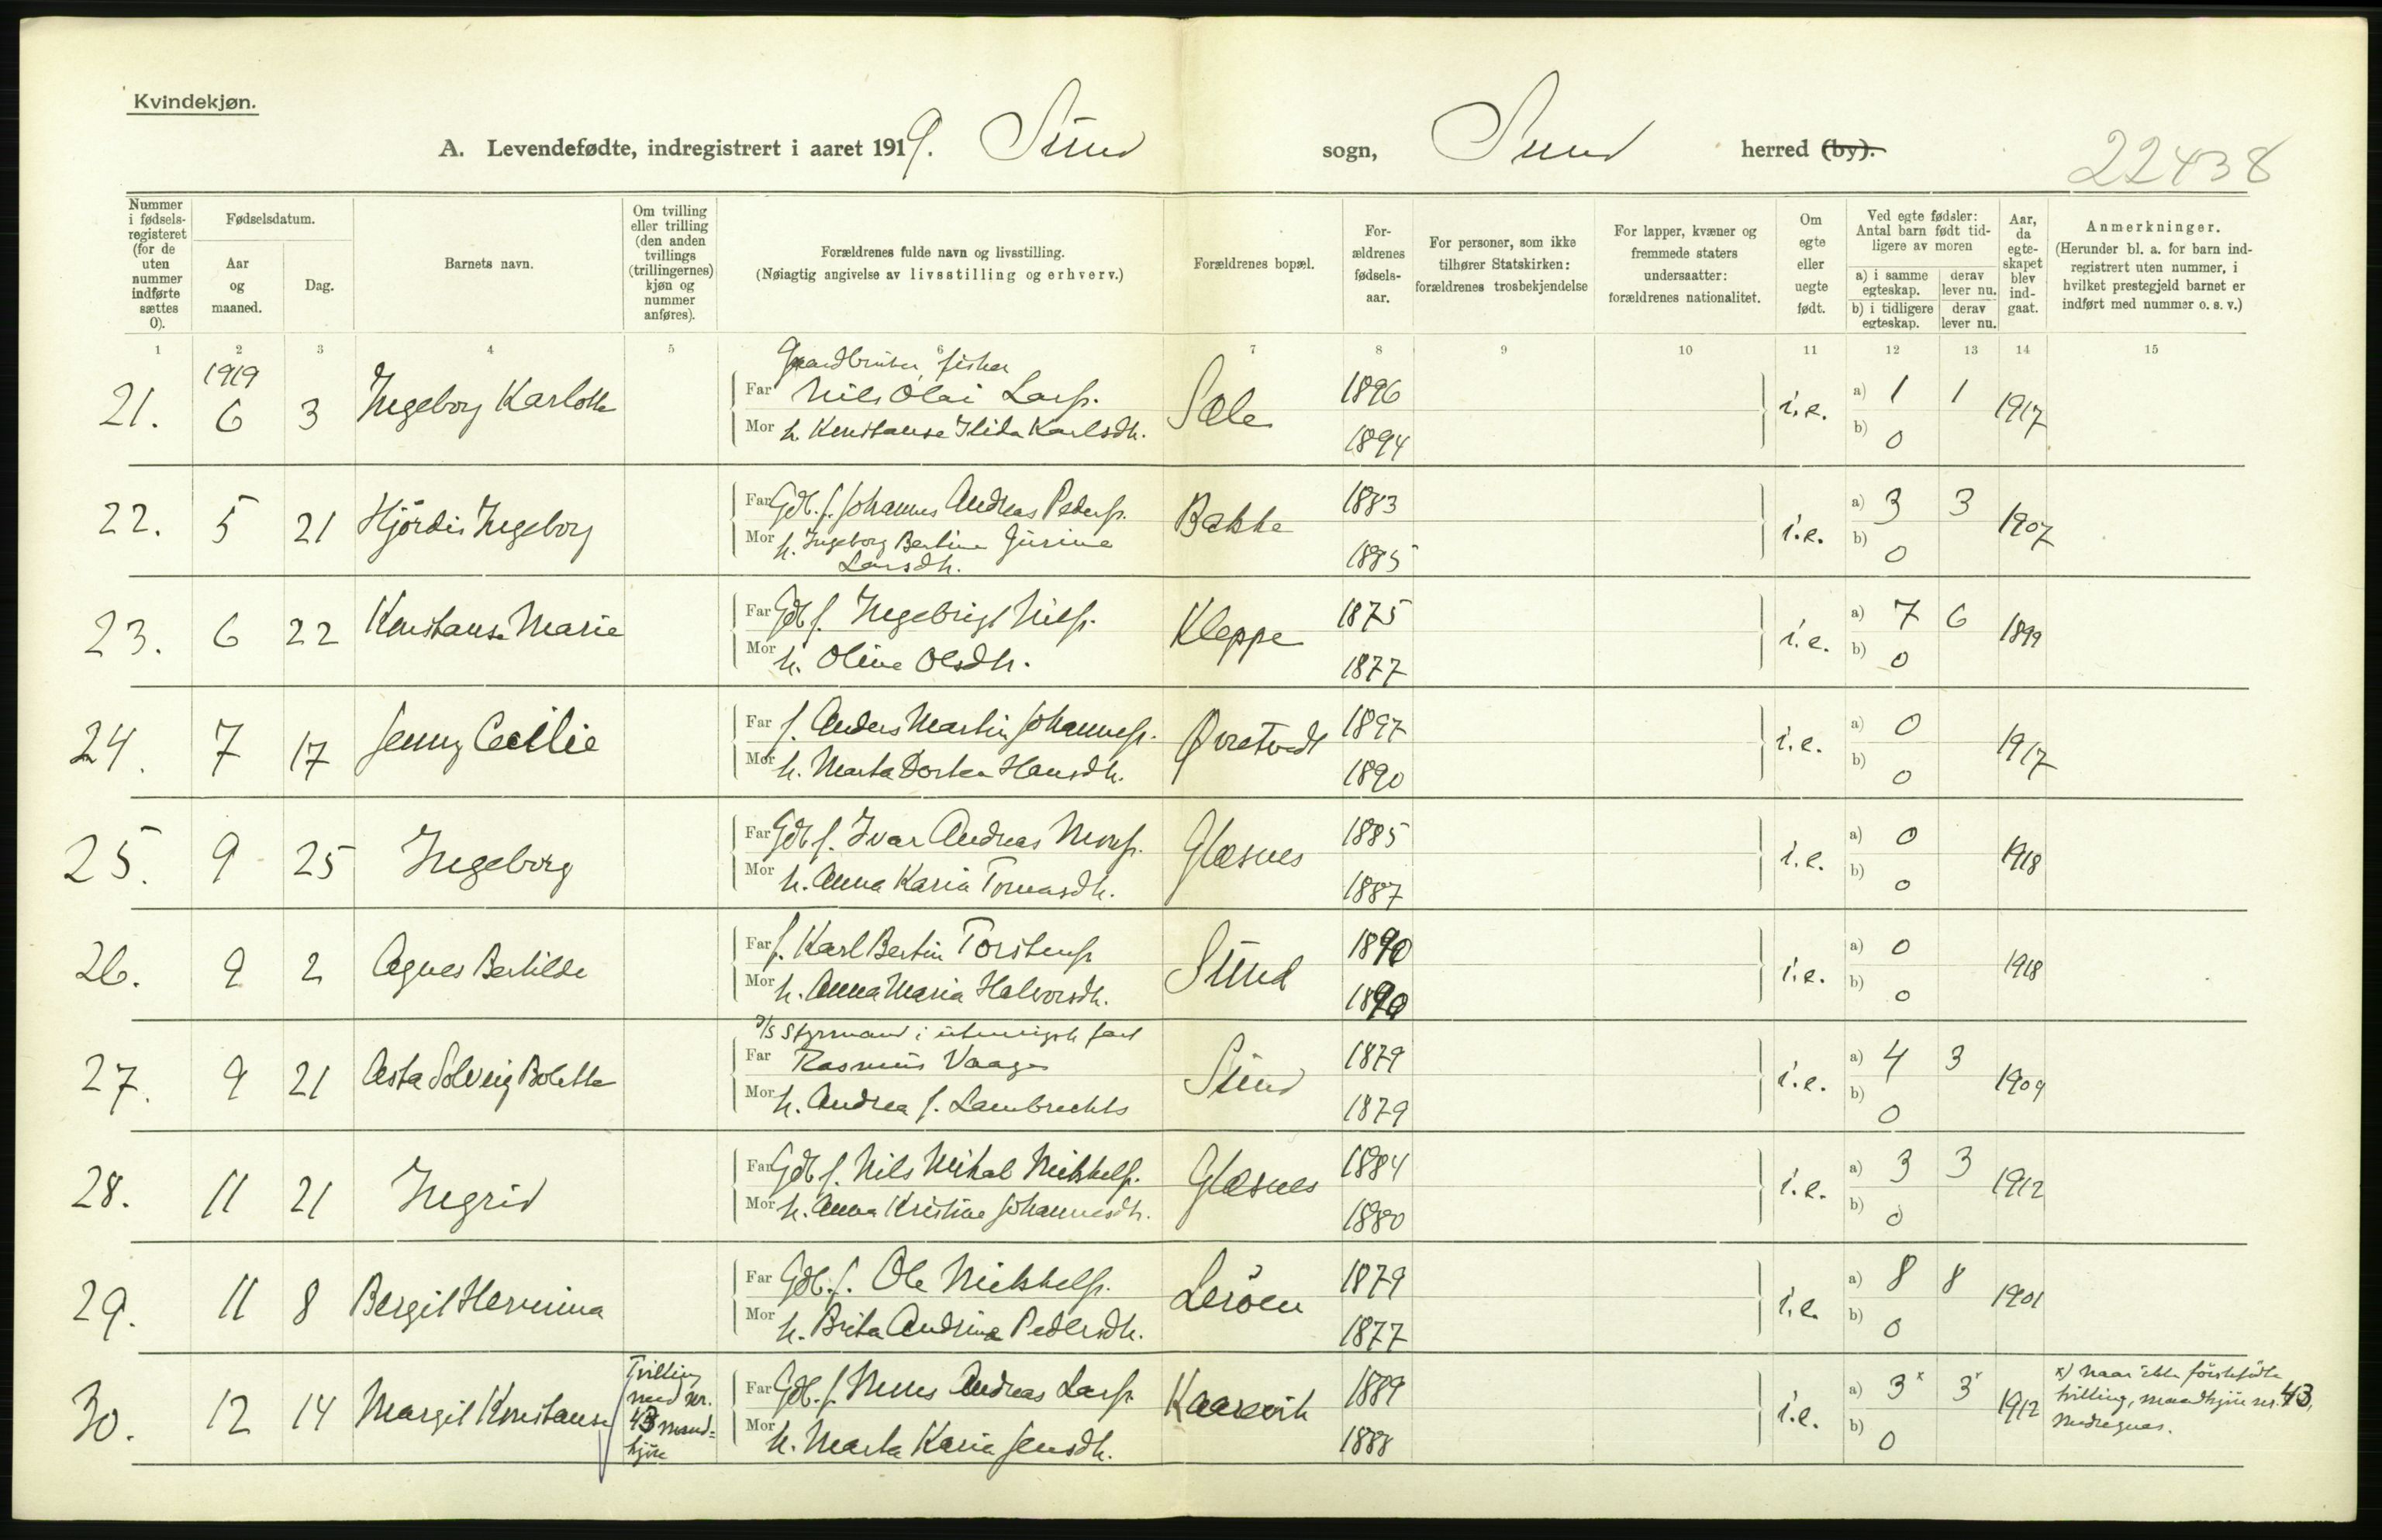 Kvindekjøn.
A. Levendefødte, indregistrert i aaret 1919. Sund sogn, Sund herred (by).
22438
Nummer i fødselsregisteret (for de uten nummer indførte sættes 0).
Fødselsdatum.
Aar og maaned.
Dag.
Barnets navn.
Om tvilling eller trilling (den anden tvillings (trillingernes) kjøn og nummer anføres).
Forældrenes fulde navn og livsstilling.
(Nøiagtig angivelse av livsstilling og erhverv.)
Forældrenes bopæl.
Forældrenes fødselsaar.
For personer, som ikke tilhører Statskirken: forældrenes trosbekjendelse
For lapper, kvæner og fremmede staters undersaatter: forældrenes nationalitet.
Om egte eller uegte født.
Ved egte fødsler: Antal barn født tidligere av moren
a) i samme egteskap. derav lever nu.
b) i tidligere egteskap. derav lever nu.
Aar, da egteskapet blev indgaat.
Anmerkninger.
(Herunder bl. a. for barn indregistrert uten nummer, i hvilket prestegjeld barnet er indført med nummer o. s. v.)
1 2 3 4 5 6 7 8 9 10 11 12 13 14 15
1919
Gaardbruker, fisker
21. 6 3 Ingeborg Karlotte Far Nils Olai Larss. Sæle 1896 i.e. a) 1 1 1917
Mor h. Konstanse Ilida Karlsdtr. 1894 b) 0
22. 5 21 Hjördis Ingeborg Far Gdb. f. Johannes Andreas Peders. Bakke 1883 i.e. a) 3 3 1907
Mor h. Ingeborg Bertine Gurine Larsdtr. 1885 b) 0
23. 6 22 Konstanse Marie Far Gdb f. Ingebrigt Nilss. Kleppe 1875 i.e. a) 7 6 1899
Mor h. Oline Olsdtr. 1877 b) 0
24. 7 17 Jenny Cecilie Far f. Anders Martin Johanness. Øvretvedt 1897 i.e. a) 0 1917
Mor h. Marta Dortea Hansdtr. 1890 b) 0
25. 9 25 Ingeborg Far Gdb f. Ivar Andreas Mons. Glæsnes 1885 i.e. a) 0 1918
Mor h. Anna Karia Tomasdtr. 1887 b) 0
26. 9 2 Agnes Bertilde Far f. Karl Bertin Torstens. Sund 1890 i.e. a) 0 1918
Mor h. Anna Maria Halvorsdtr. 1890 b) 0
D/S Styrmand i utenrigsk fart
27. 9 21 Asta Solveig Bolette Far Rasmus Vaage Sund 1879 i.e. a) 4 3 1909
Mor h. Andrea f. Lambrechts 1879 b) 0
28. 11 21 Ingrid Far Gdb f. Nils Mikal Mikkels. Glæsnes 1884 i.e. a) 3 3 1912
Mor h. Anna Kristine Johannesdtr. 1880 b) 0
29. 11 8 Bergit Hermina Far Gdb. f. Ole Mikkels. Leröen 1879 i.e. a) 8 8 1901
Mor h. Brita Andrina Pedersdtr. 1877 b) 0
30. 12 14 Margit Konstanse Tvilling med nr. 43 mandkjön Far Gdb. f. Mons Andreas Larss. Kaarevik 1889 i.e. a) 3x 3x 1912 x) Naar ikke förstefödte tvilling, mandkjön nr. 43, medregnes.
Mor h. Marta Karia Jensdtr. 1888 b) 0